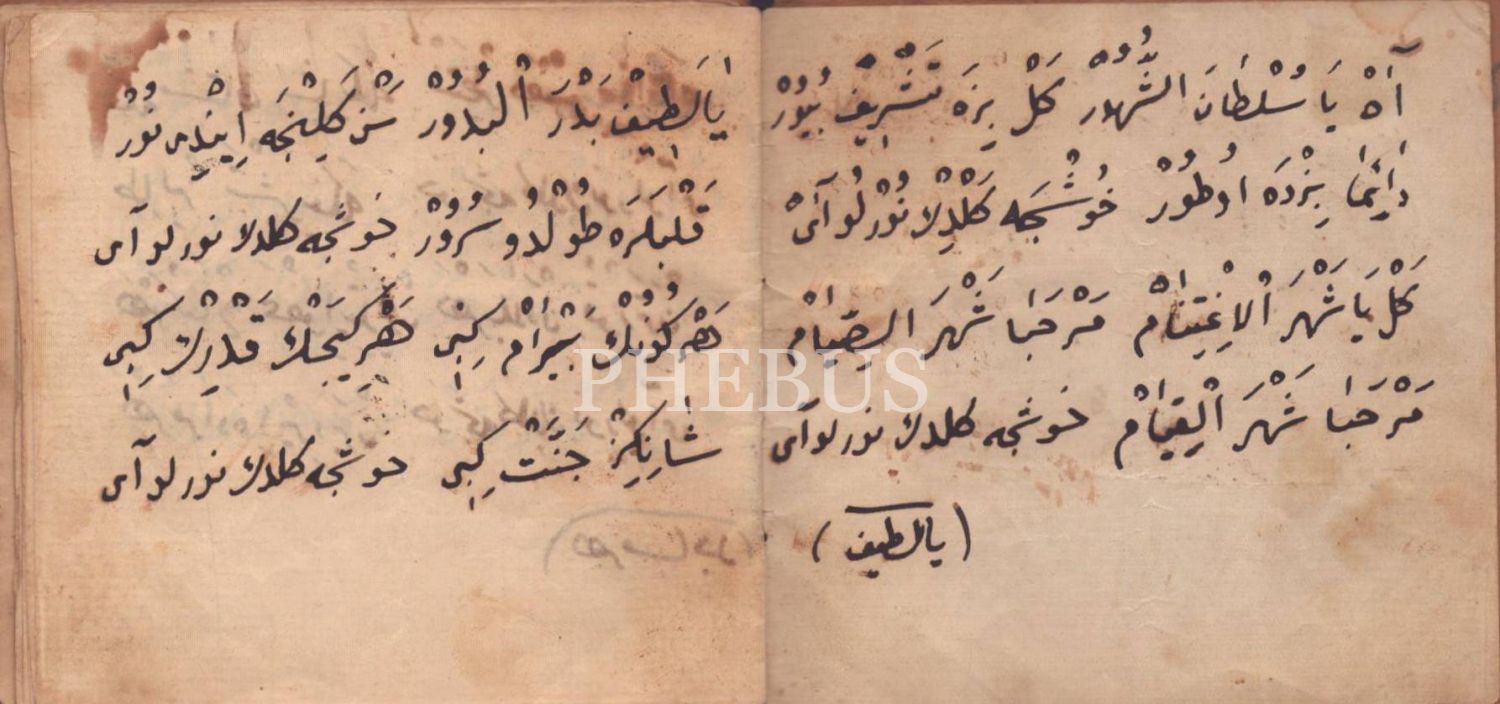 آه يَا سُلْطَانَ الشُّهُورْ كَلْ بِزَه تَشْرِيفْ بُيُورْ
دَائِمَا بِزْدَه اوُطُورْ خُوشْجَه كَلْدِڭ نُورْلُو آىْ
كَلْ يَا شَهْرَ الْاِغْتِنَامْ مَرْحَبَا شَهْرَ الصِّيَامْ
مَرْحَبَا شَهْرَ الْقِيَامْ خوشجه كلدڭ نورلو آى
(يالطيف)
يَالَطِيفْ بَدْرَ الْبُدُورْ سَنْ كَلِينْجَه اِينْدِى نُورْ
قَلْبلَرَه طُولْدُو سُرُورْ خوشجه كلدڭ نورلو آى
هَرْ كُونُكْ بَيْرَامْ كِبِى هَرْ كِيجَكْ قَدْرِكْ كِبِى
شانِكِزْ جَنَّتْ كِبِى خوشجه كلدڭ نورلو آى
PHEBUS